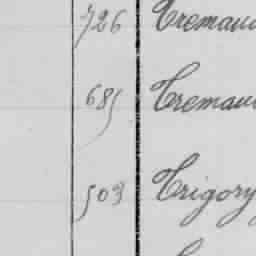 726 Tremau
685 Tremau
503 Trigory